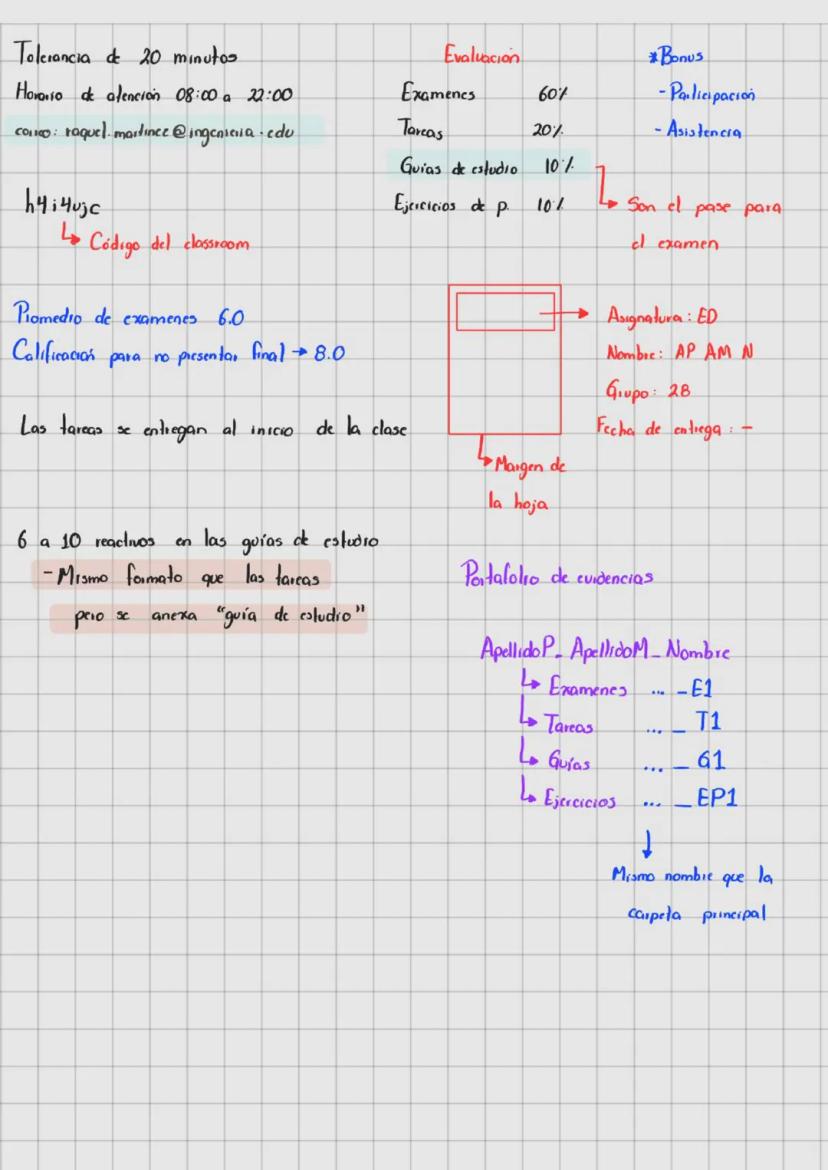 Tolerancia de 20 minutos
Horario de atención 08:00 a 22:00
correo: raquel.martinez@ingenieria.edu
h4i4vjc
↳ Código del classroom
Promedio de examenes 6.0
Calificación para no presentar final → 8.0
Las tareas se entregan al inicio de la clase
6 a 10 reactivos en las guías de estudio
- Mismo formato que las tareas
pero se anexa "guía de estudio"
Evaluación
Examenes 60%
Tareas 20%
Guías de estudio 10%
Ejercicios de p. 10%
*Bonus
- Participación
- Asistencia
↳ Son el pase para
el examen
→ Asignatura: ED
Nombre: AP AM N
Grupo: 28
Fecha de entrega: -
↳ Margen de
la hoja
Portafolio de evidencias
ApellidoP_ApellidoM_Nombre
↳ Examenes ... _E1
↳ Tareas ... _ T1
↳ Guías ... _ G1
↳ Ejercicios ... _ EP1
↓
Mismo nombre que la
carpeta principal